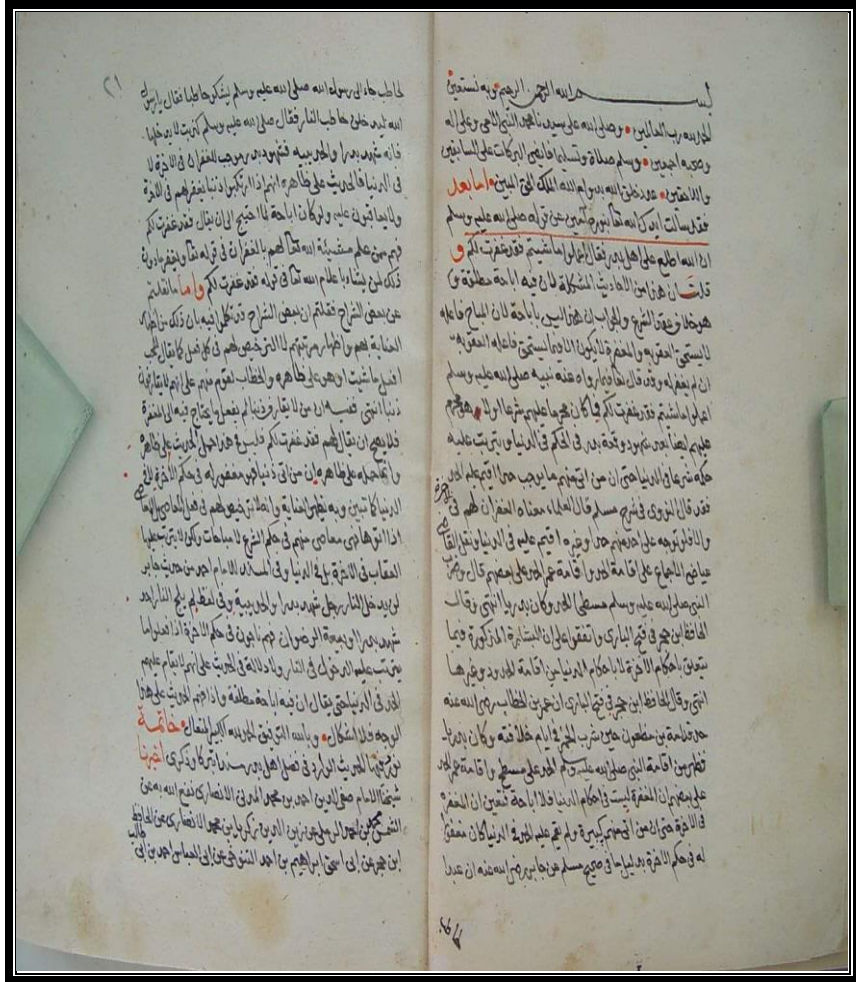 بسم الله الرحمن الرحيم وبه نستعين
الحمد لله رب العالمين وصلى الله على سيدنا محمد النبي الأمي وعلى آله
وصحبه أجمعين وسلم صلاة وتسليما فايضي البركات على السابقين
واللاحقين عدد خلق الله بدوام الله الملك الحق المبين اما بعد
فقد سالت ايدك الله تعالى بنوره المبين عن قوله صلى الله عليه وسلم
ان الله اطلع على اهل بدر فقال اعملوا ما شئتم فقد غفرت لكم و
قلت ان هذا من الاحاديث المشكلة لان فيه اباحة مطلقة و
هو خلاف عقد الشرع والجواب ان هذا ليس باباحة لان المباح فاعله
لا يستحق العقوبة والمغفرة لا يكون الا وما يستحق فاعله العقوبة
ان لم يغفر له وقد قال تعالى فيما رواه عنه نبيه صلى الله عليه وسلم
اعملوا ما شئتم فقد غفرت لكم فما كان محرما عليهم شرعا اولا هو محرم
عليهم ايضا بعد شهود وقعة بدر في الحكم في الدنيا ويترتب عليه
حكمه شرعا في الدنيا حتى ان من اتى منهم ما يوجب حدا اقيم عليه الحد
فقد قال النووي في شرح مسلم قال العلماء معناه الغفران لهم في الآخرة
والا فلو توجه على احد منهم حد او غيره اقيم عليه في الدنيا ونقل القاضي
عياض الاجماع على اقامة الحد واقامة عمر الحد على بعضهم قال وضرب
النبي صلى الله عليه وسلم مسطحا الحد وكان بدريا انتهى وقال
الحافظ ابن حجر في فتح الباري واتفقوا على ان البشارة المذكورة فيما
يتعلق باحكام الآخرة لا باحكام الدنيا من اقامة الحدود وغيرها
انتهى وقال الحافظ ابن حجر في فتح الباري ان عمر بن الخطاب رضي الله عنه
حد قدامة بن مظعون حين شرب الخمر في ايام خلافته وكان بدريا
فظهر من اقامة النبي صلى الله عليه وسلم الحد على مسطح واقامة عمر الحد
على بعضهم ان المغفرة ليست في احكام الدنيا فلا اباحة فتعين ان المغفرة
في الآخرة حتى ان من اتى منهم كبيرة ولم يقم عليه الحد في الدنيا كان مغفورا
له في حكم الآخرة بدليل ما في صحيح مسلم عن جابر رضي الله عنه ان عبدا
لحاطب جاء الى رسول الله صلى الله عليه وسلم يشكو حاطبا فقال يا رسول
الله ليدخلن حاطب النار فقال صلى الله عليه وسلم كذبت لا يدخلها
فانه شهد بدرا والحديبية فشهود بدر موجب للغفران في الآخرة لا
في الدنيا فالحديث على ظاهره انهم اذا ارتكبوا ذنبا يغفر لهم في الآخرة
ولا يعاقبون عليه ولو كان اباحة لما احتيج الى ان يقال فقد غفرت لكم
فهم ممن علم مشيئة الله تعالى لهم بالغفران في قوله تعالى ويغفر ما دون
ذلك لمن يشاء باعلام الله تعالى في قوله فقد غفرت لكم واما ما نقلتم
عن بعض الشراح فقلتم ان بعض الشراح قد تكلم فيه بان ذلك من اظهار
العناية لهم واظهار مرتبتهم لا الترخيص لهم في كل فعل كما يقال للمحب
افعل ما شئت او هو على ظاهره والخطاب لقوم منهم على انهم لا يقارفون
ذنبا انتهى ففيه ان من لا يقارف ذنبا لم يفعل ما يحتاج فيه الى المغفرة
فلا يصح ان يقال لهم فقد غفرت لكم فليس في هذا حمل الحديث على ظاهره
وانما حمله على ظاهره ان من اتى ذنبا فهو مغفور له في حكم الآخرة لا في
الدنيا كما تبين وبه يظهر العناية وانه لا ترخيص لهم في فعل المعاصي بل
اذا اتوها فهي معاصي منهم في حكم الشرع لا مباحات ولكن لا يترتب عليها
العقاب في الآخرة بل في الدنيا وفي المسند للامام احمد من حديث جابر
لن يدخل النار رجل شهد بدرا والحديبية وفي لفظ لم يلج النار احد
شهد بدرا او بيعة الرضوان فهم ناجون في حكم الآخرة اذا فعلوا ما
يترتب عليه الدخول في النار ولا دلالة في الحديث على انهم لا يقام عليهم
الحد في الدنيا حتى يقال ان فيه اباحة مطلقة واذا فهم الحديث على هذا
الوجه فلا اشكال وبالله التوفيق الحمد لله الكبير المتعال خاتمة
نورد فيها الحديث الوارد في فضل اهل بدر مسندا تبركا وذكرى اخبرنا
شيخنا الامام صفي الدين احمد بن محمد المدني الانصاري نفع الله به عن
الشمس محمد بن احمد الرملي عن زين الدين زكريا بن محمد الانصاري عن الحافظ
ابن حجر عن ابي اسحق ابراهيم بن احمد التنوخي عن ابي العباس احمد بن ابي طالب